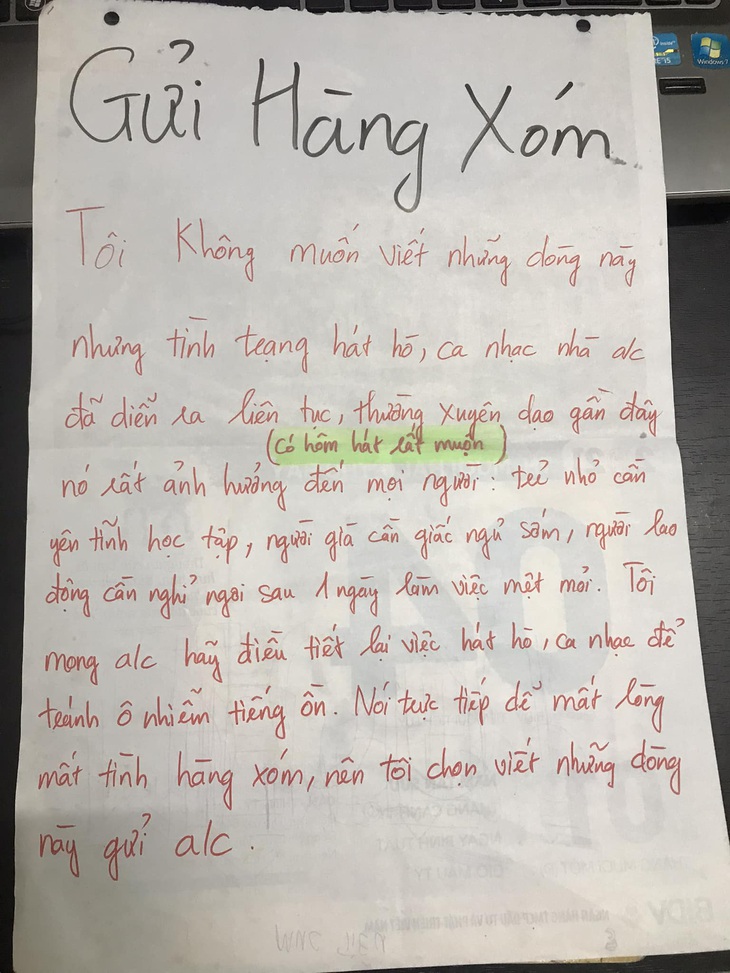 Gửi Hàng Xóm
Tôi Không muốn viết những dòng này
nhưng tình trạng hát hò, ca nhạc nhà a/c
đã diễn ra liên tục, thường xuyên dạo gần đây
(có hôm hát rất muộn)
nó rất ảnh hưởng đến mọi người: trẻ nhỏ cần
yên tĩnh học tập, người già cần giấc ngủ sớm, người lao
động cần nghỉ ngơi sau 1 ngày làm việc mệt mỏi. Tôi
mong a/c hãy điều tiết lại việc hát hò, ca nhạc để
tránh ô nhiễm tiếng ồn. Nói trực tiếp dễ mất lòng
mất tình hàng xóm, nên tôi chọn viết những dòng
này gửi a/c.
BIDV NGÂN HÀNG TMCP ĐẦU TƯ VÀ PHÁT TRIỂN VIỆT NAM
Windows 7